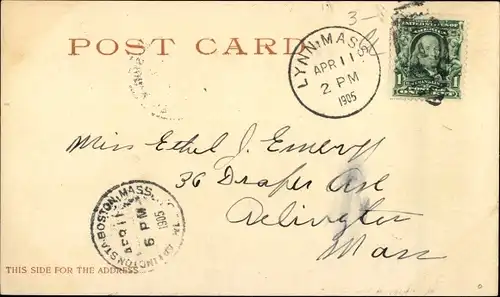 3-
POST CARD
LYNN, MASS.
APR 11
2 PM
1905
UNITED STATES OF
AMERICA
1 1
Miss Ethel J. Emery
36 Draper Ave
Arlington
Mass
BOSTON, MASS.
ARLINGTON STA.
APR 11
5 PM
1905
THIS SIDE FOR THE ADDRESS